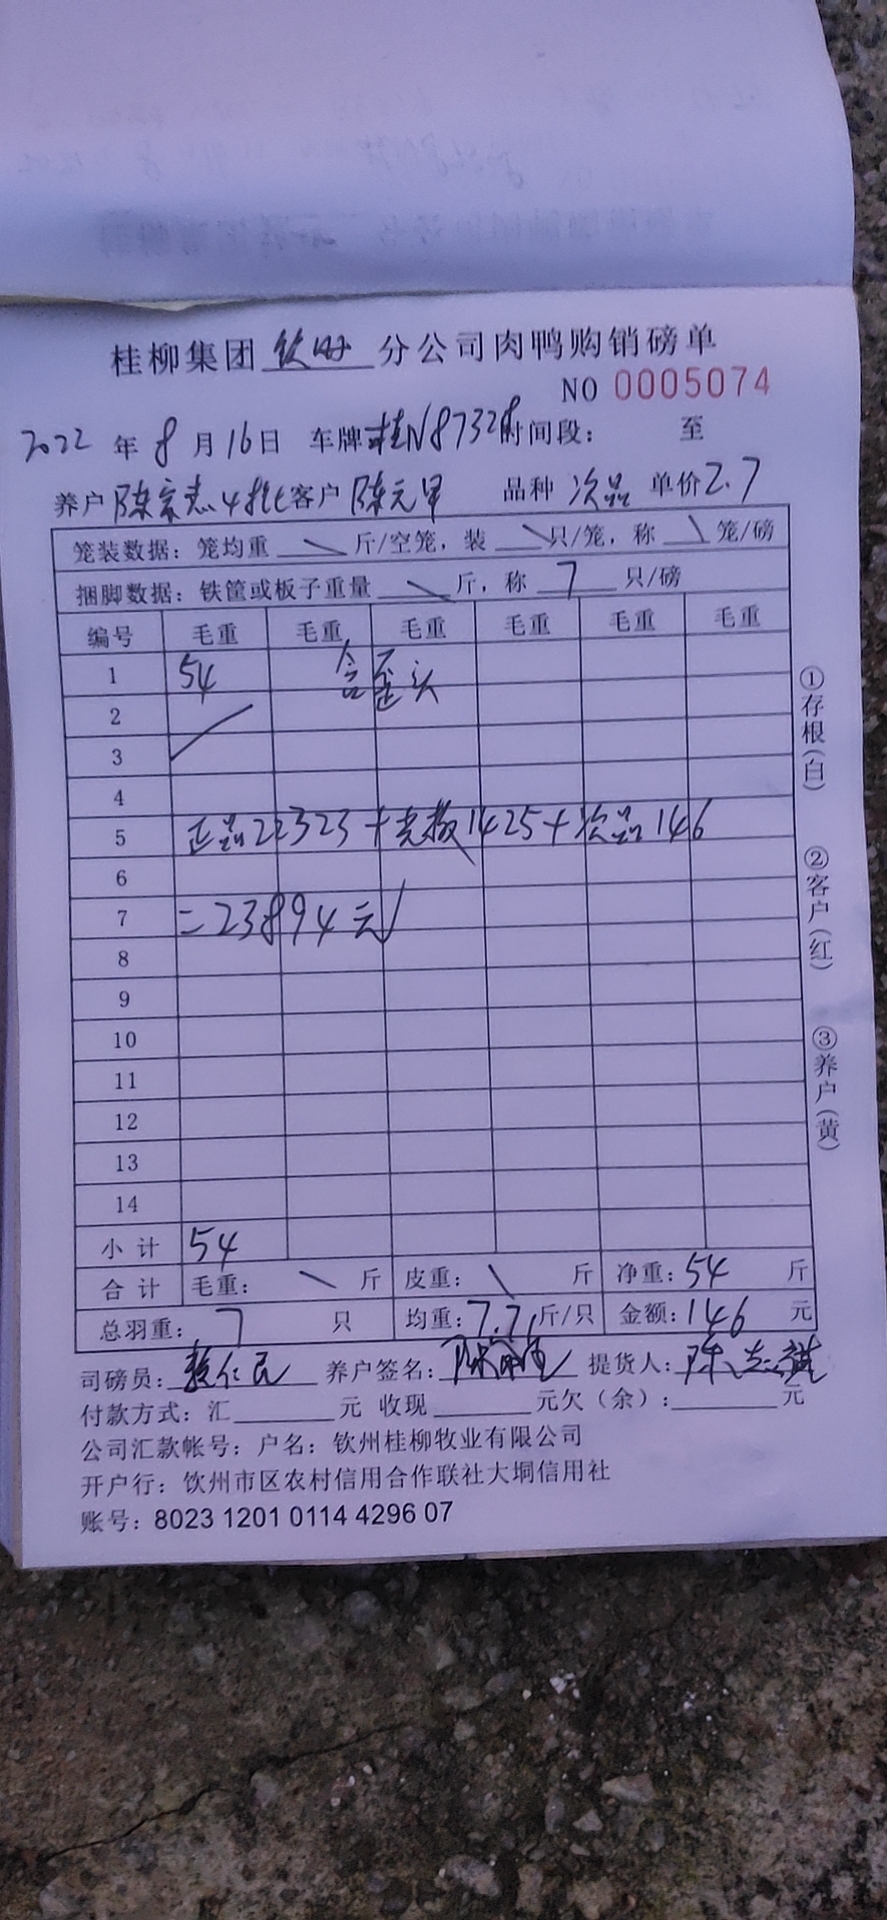 桂柳集团 钦州 分公司肉鸭购销磅单
NO 0005074
2022 年 8 月 16 日 车牌 桂N87328 时间段： 至
养户 陈家志4批 客户 陈元早 品种 次品 单价 2.7
笼装数据：笼均重 \ 斤/空笼，装 \ 只/笼，称 \ 笼/磅
捆脚数据：铁筐或板子重量 \ 斤，称 7 只/磅
编号 毛重 毛重 毛重 毛重 毛重 毛重
1 54 含歪头
2
3
4
5 正品22323+壳数1425+次品146
6
7 =23894元
8
9
10
11
12
13
14
小计 54
合计 毛重： \ 斤 皮重： \ 斤 净重：54 斤
总羽重： 7 只 均重：7.71斤/只 金额：146 元
司磅员： 养户签名： 提货人：陈志
付款方式：汇 元 收现 元欠（余）： 元
公司汇款帐号：户名：钦州桂柳牧业有限公司
开户行：钦州市区农村信用合作联社大垌信用社
账号：8023 1201 0114 4296 07
①存根（白）
②客户（红）
③养户（黄）